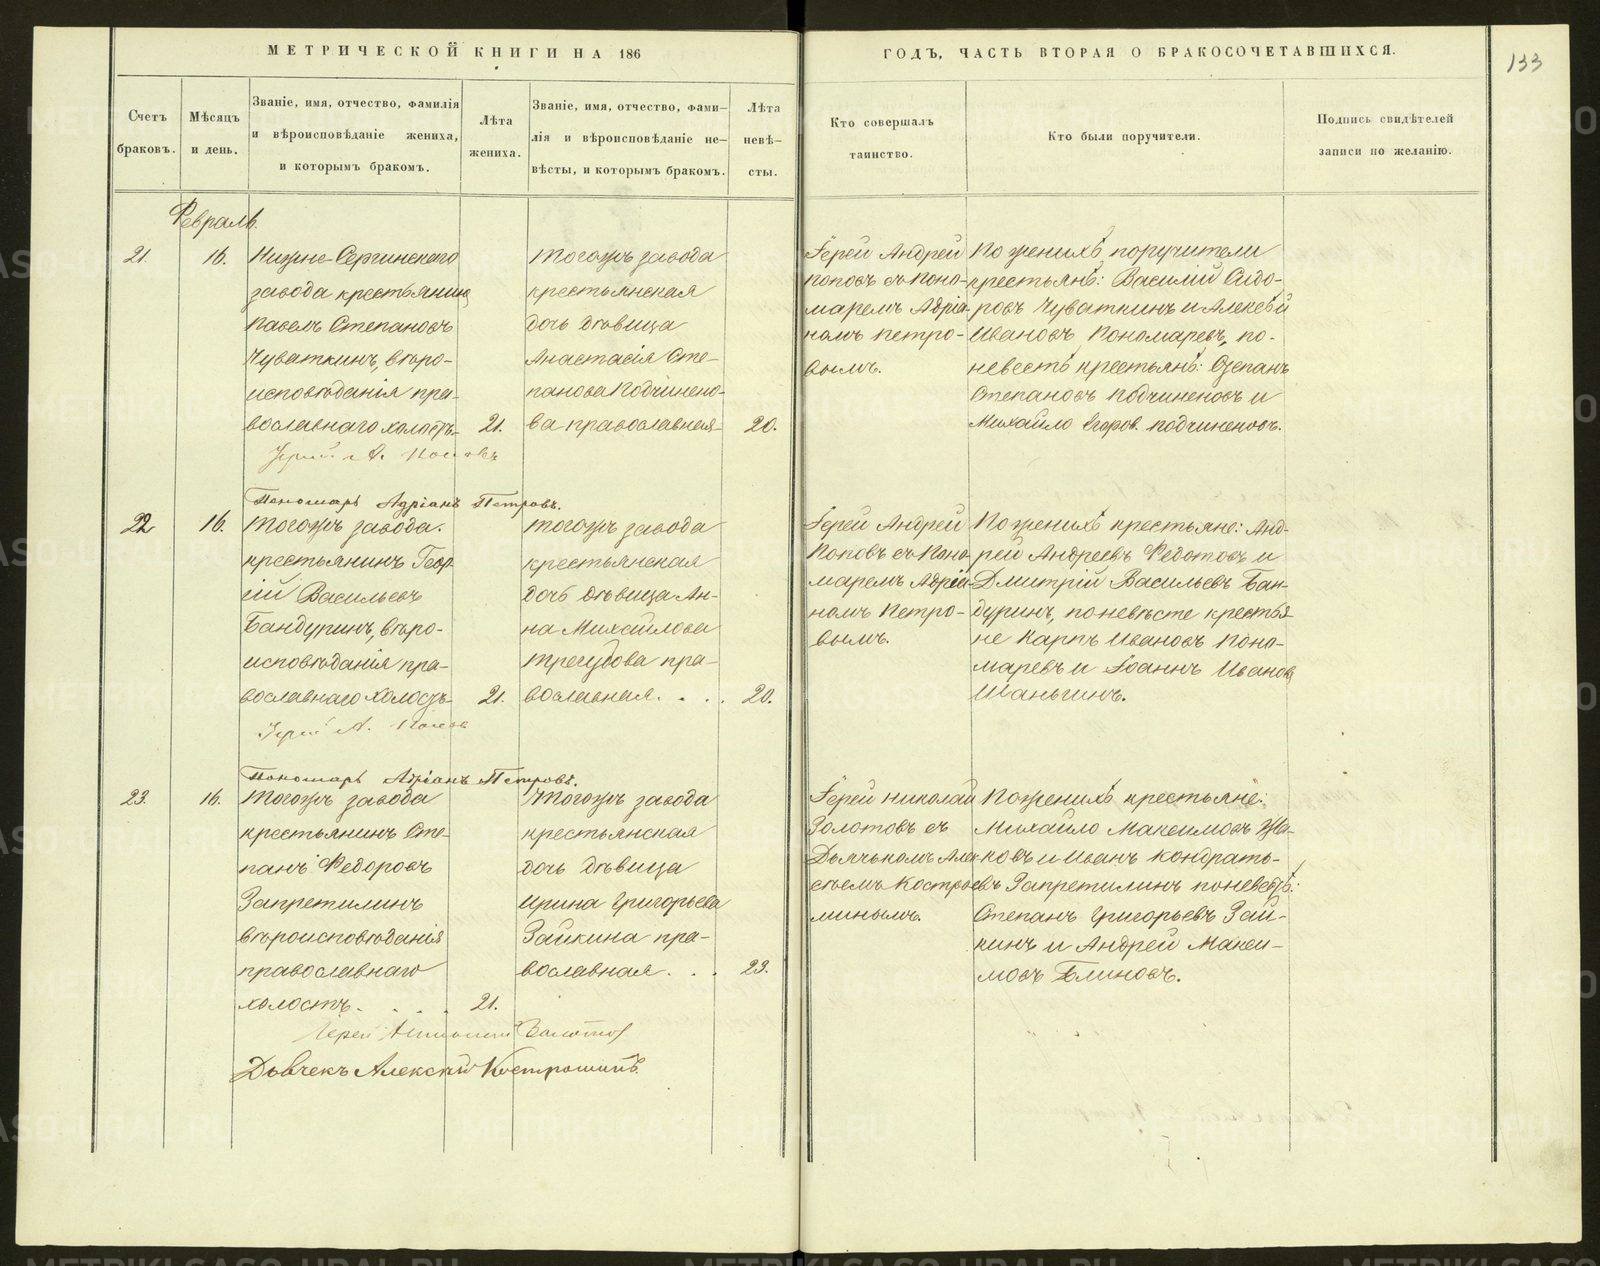 МЕТРИЧЕСКОЙ КНИГИ НА 186
ГОДЪ, ЧАСТЬ ВТОРАЯ О БРАКОСОЧЕТАВШИХСЯ.
133
Счетъ
браковъ.
Мѣсяцъ
и день.
Званіе, имя, отчество, фамилія
и вѣроисповѣданіе жениха,
и которымъ бракомъ.
Лѣта
жениха.
Званіе, имя, отчество, фами–
лія и вѣроисповѣданіе не–
вѣсты, и которымъ бракомъ.
Лѣта
невѣ–
сты.
Кто совершалъ
таинство.
Кто были поручители.
Подпись свидѣтелей
записи по желанію.
Февраль.
21.
16.
Нижне-Сергинскаго
завода крестьянинъ
Павелъ Степановъ
Чуваткинъ, вѣро-
исповѣданія пра-
вославнаго холостъ
21.
Тогожъ завода
крестьянская
дочь дѣвица
Анастасія Сте-
панова Подчинено-
ва православная
20.
Іерей Андрей
Поповъ съ Поно-
маремъ Адріа-
номъ Петро-
вымъ.
По женихѣ поручители
крестьянѣ: Василій Сидо-
ровъ Чуваткинъ и Алексѣй
Ивановъ Пономаревъ, по-
невестѣ крестьянѣ: Степанъ
Степановъ Подчиненовъ и
Михайло Егоров. Подчиненовъ.
Іерей А. Поповъ
Пономарь Адріанъ Петровъ.
22
16.
Тогожъ завода.
крестьянинъ Геор-
гій Васильевъ
Бандуринъ, вѣро-
исповѣданія пра-
вославнаго холостъ
21.
Тогожъ завода
крестьянская
дочь дѣвица Ан-
на Михайлова
Трегубова пра-
вославная. . .
20.
Іерей Андрей
Поповъ съ Поно-
маремъ Адріа-
номъ Петро-
вымъ.
По женихѣ крестьяне: Анд-
рей Андреевъ Федотовъ и
Дмитрій Васильевъ Бан-
дуринъ, по невѣсте крестья-
не Карпъ Ивановъ Поно-
маревъ и Іоаннъ Ивановъ
Шаньгинъ.
Іерей А. Попов
Пономарь Адріанъ Петровъ.
23.
16.
Тогожъ завода
крестьянинъ Сте-
панъ Федоровъ
Запретилинъ
вѣроисповѣданія
православнаго
холостъ. . . .
21.
Тогожъ завода
крестьянская
дочь дѣвица
Ирина Григорьева
Зайкина пра-
вославная. . .
23.
Іерей Николай
Золотовъ съ
Дьячькомъ Алек-
сѣемъ Костро-
минымъ.
По женихѣ крестьяне:
Михайло Максимовъ
и Иванъ Кондрать-
евъ Запретилинъ по невестѣ:
Степанъ Григорьевъ Зай-
кинъ и Андрей Макси-
мовъ Блиновъ.
Іерей Николай Золотов
Дьячекъ Алексѣй Костроминъ.
METRIKI.GASO-URAL.RU